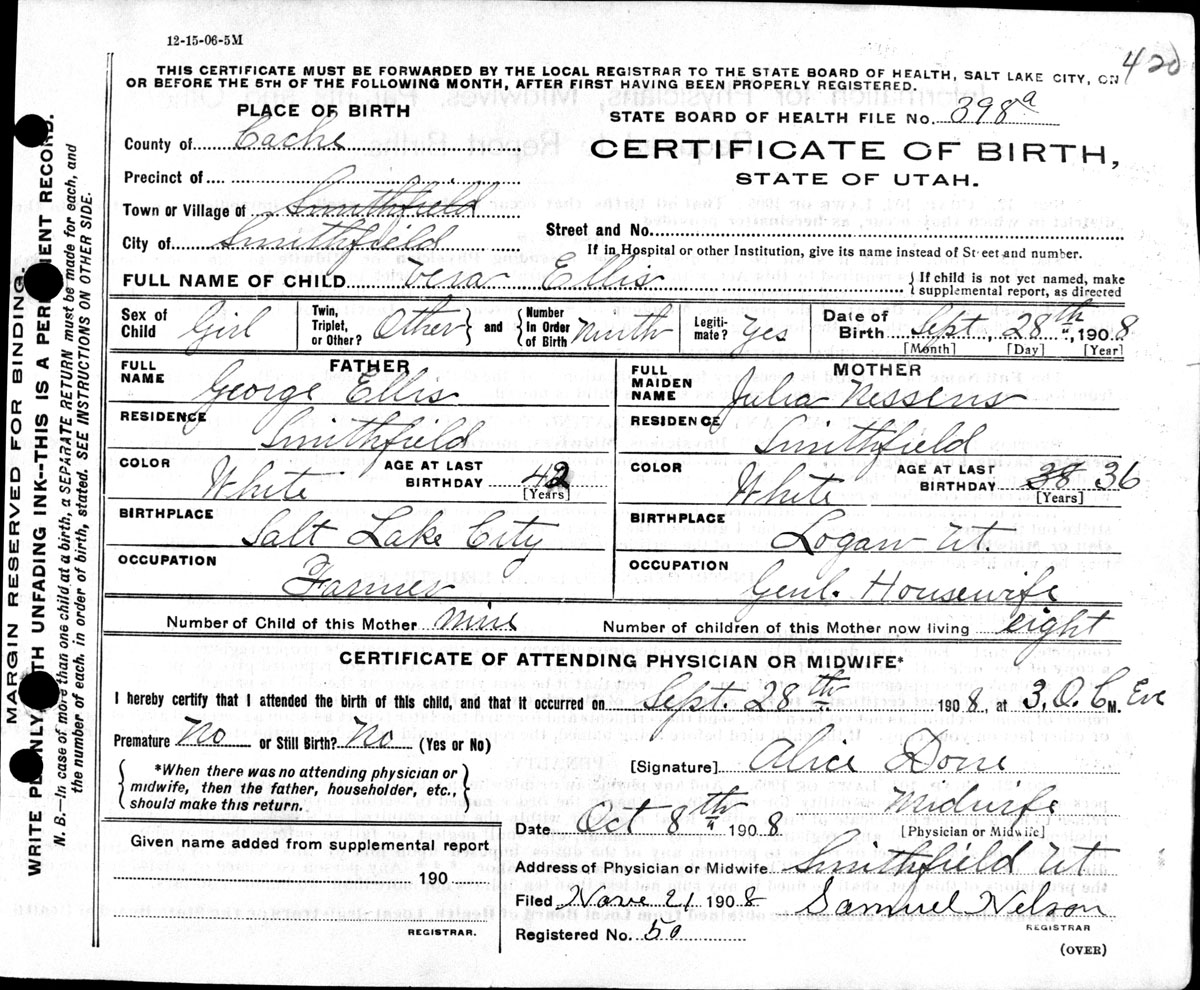 12-15-06-5M
420
THIS CERTIFICATE MUST BE FORWARDED BY THE LOCAL REGISTRAR TO THE STATE BOARD OF HEALTH, SALT LAKE CITY, ON
OR BEFORE THE 5TH OF THE FOLLOWING MONTH, AFTER FIRST HAVING BEEN PROPERLY REGISTERED.
PLACE OF BIRTH
STATE BOARD OF HEALTH FILE No. 398a
County of Cache
CERTIFICATE OF BIRTH,
STATE OF UTAH.
Precinct of
Town or Village of Smithfield
Street and No.
City of Smithfield
If in Hospital or other Institution, give its name instead of Street and number.
FULL NAME OF CHILD Vera Ellis { If child is not yet named, make
supplemental report, as directed
Sex of Child Girl Twin, Triplet, or Other? Other } and { Number In Order of Birth Ninth Legiti- mate? Yes Date of Birth Sept. 28th, 1908
[Month] [Day] [Year]
FATHER
FULL NAME George Ellis
MOTHER
FULL MAIDEN NAME Julia Nessens
RESIDENCE Smithfield
RESIDENCE Smithfield
COLOR White AGE AT LAST BIRTHDAY 42
[Years]
COLOR White AGE AT LAST BIRTHDAY 38 36
[Years]
BIRTHPLACE Salt Lake City
BIRTHPLACE Logan Ut.
OCCUPATION Farmer
OCCUPATION Genl. Housewife
Number of Child of this Mother nine Number of children of this Mother now living eight
CERTIFICATE OF ATTENDING PHYSICIAN OR MIDWIFE*
I hereby certify that I attended the birth of this child, and that it occurred on Sept. 28th 1908, at 3, O. C M. Eve
Premature No or Still Birth? No (Yes or No)
{ *When there was no attending physician or
midwife, then the father, householder, etc.,
should make this return. }
[Signature] Alice Dorre
Midwife
Date Oct 8th 1908 [Physician or Midwife]
Given name added from supplemental report
190
REGISTRAR.
Address of Physician or Midwife Smithfield Ut
Filed Nove 21 1908 Samuel Nelson
REGISTRAR
Registered No. 50
(OVER)
MARGIN RESERVED FOR BINDING.
WRITE PLAINLY WITH UNFADING INK--THIS IS A PERMANENT RECORD.
N. B.—In case of more than one child at a birth, a SEPARATE RETURN must be made for each, and
the number of each, in order of birth, stated. SEE INSTRUCTIONS ON OTHER SIDE.